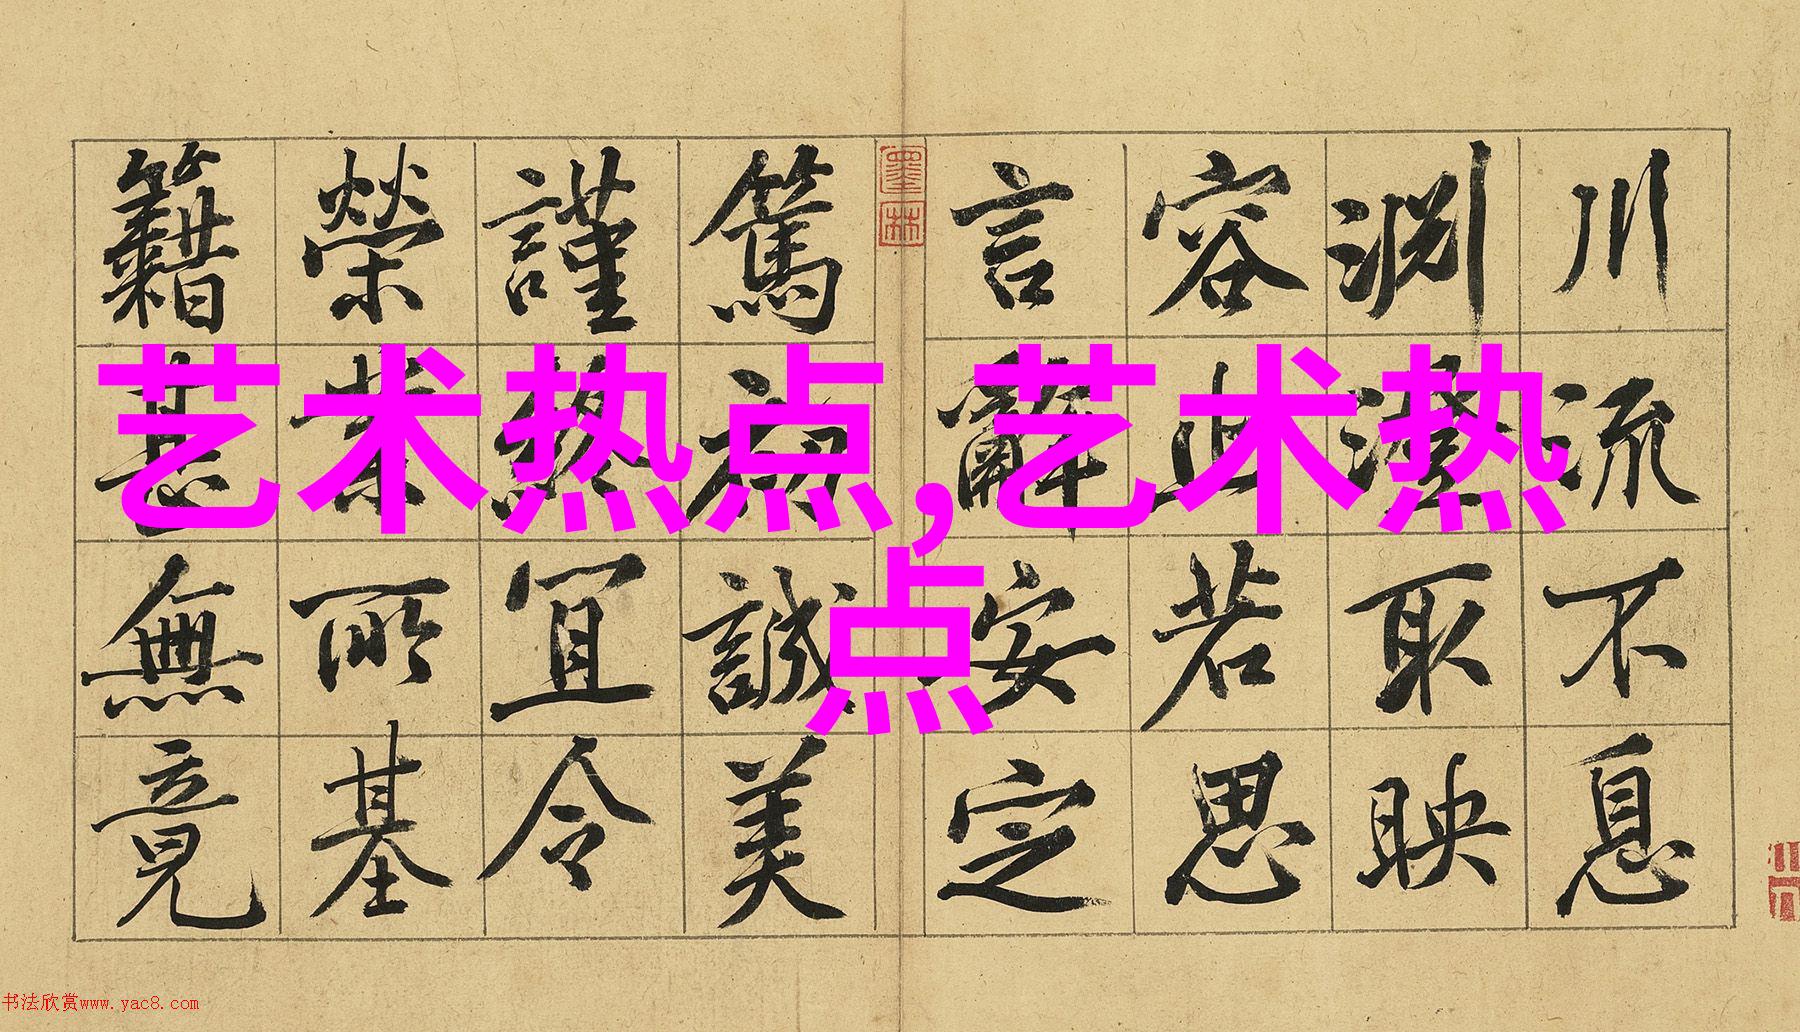 川流不息
淵澄取映
容止若思
言辭安定
墨林
篤初誠美
謹終宜令
榮業所基
籍甚無竟
艺术热点,艺术热
点
书法欣赏www.yac8.com